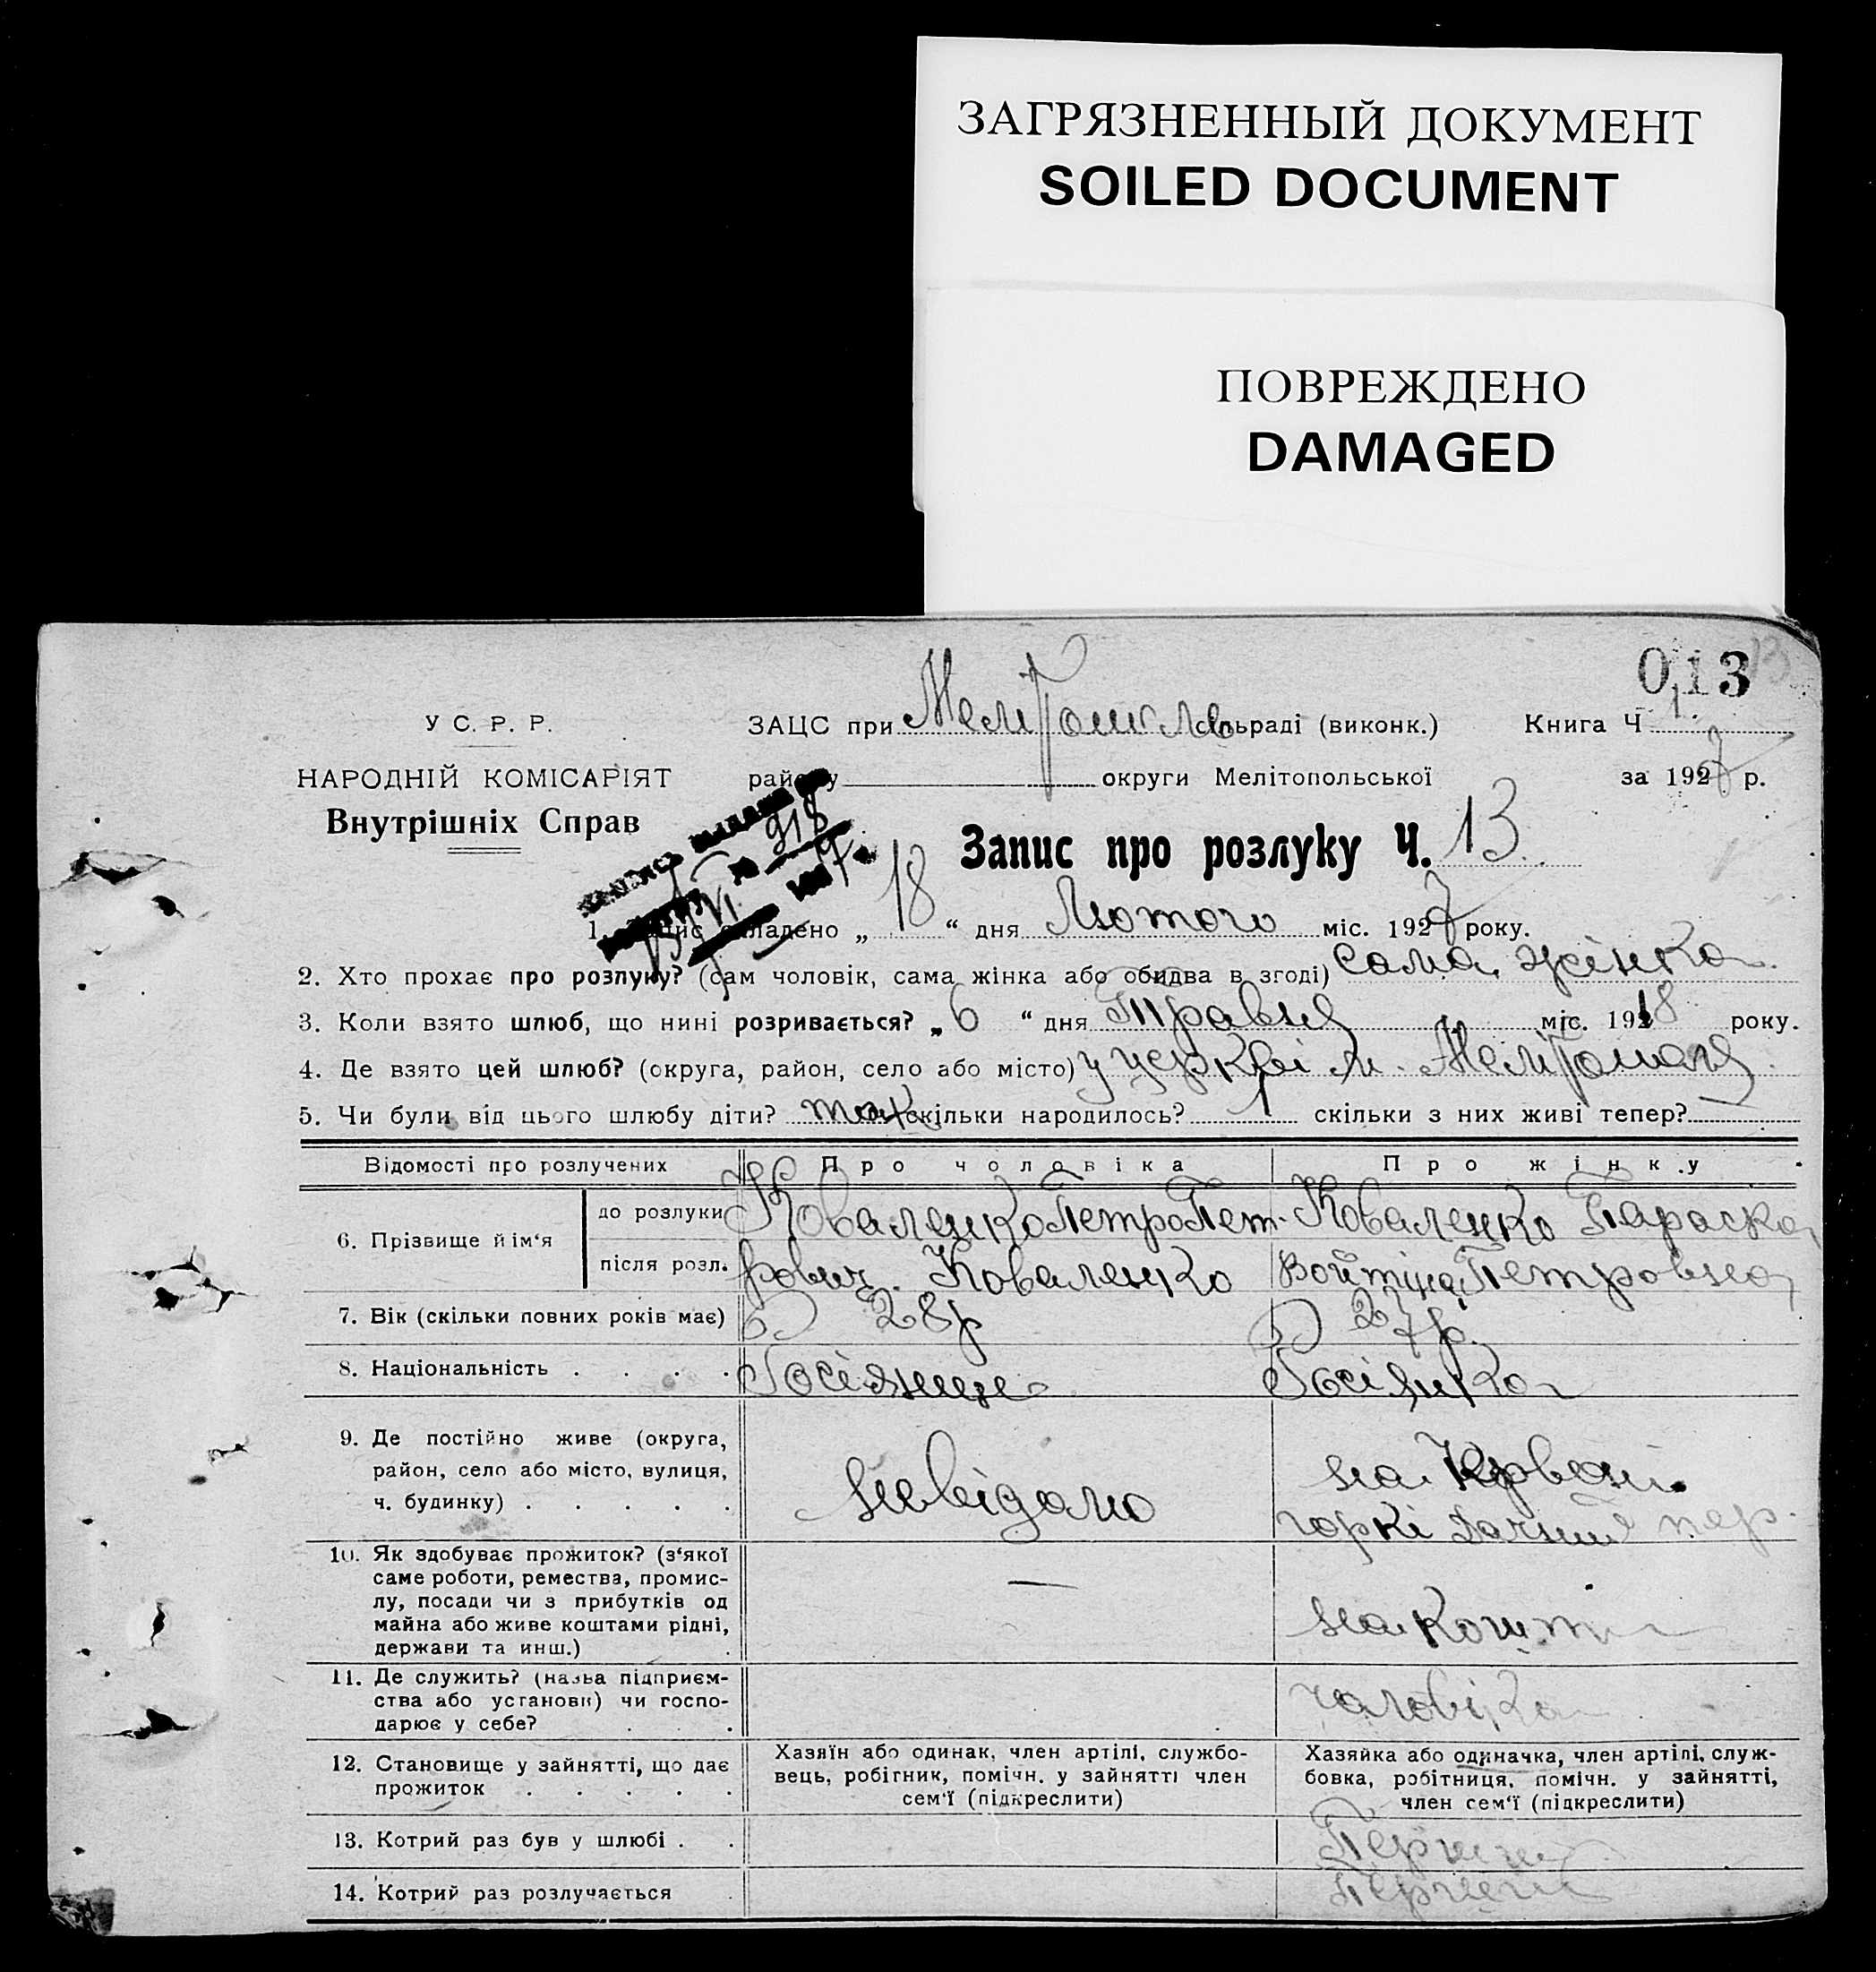 ЗАГРЯЗНЕННЫЙ ДОКУМЕНТ
SOILED DOCUMENT
ПОВРЕЖДЕНО
DAMAGED
013
У С. Р. Р.
ЗАЦС при сільраді (виконк.) Книга Ч 1.
НАРОДНІЙ КОМІСАРІЯТ
району округи Мелітопольської за 1927 р.
Внутрішніх Справ
918
Запис про розлуку Ч. 13
1. Запис складено „ 18 “ дня Лютого міс. 1927 року.
2. Хто прохає про розлуку? (сам чоловік, сама жінка або обидва в згоді) сама жінка
3. Коли взято шлюб, що нині розривається? „ 6 “ дня Травня міс. 1918 року.
4. Де взято цей шлюб? (округа, район, село або місто) у церкві м. Мелітополя
5. Чи були від цього шлюбу діти? так скільки народилось? 1 скільки з них живі тепер?
Відомості про розлучених Про чоловіка Про жінку
6. Прізвище й ім‘я
до розлуки Коваленко Петро Пет- Коваленко Параска
після розл. рович. Коваленко Войтіна Петровна
7. Вік (скільки повних років має) 28р 27р.
8. Національність . . . . Росіянин Росіянка
9. Де постійно живе (округа,
район, село або місто, вулиця,
ч. будинку) . . . . .
невідомо
на
горкі пер.
10. Як здобуває прожиток? (з‘якої
саме роботи, ремества, промис-
лу, посади чи з прибутків од
майна або живе коштами рідні,
держави та инш.) .
—
на кошти
11. Де служить? (назва підприєм-
ства або установи) чи госпо-
дарює у себе? . . .
чоловіка
12. Становище у зайнятті, що дає
прожиток . . . . .
Хазяїн або одинак, член артілі, службо-
вець, робітник, помічн. у зайнятті член
сем‘ї (підкреслити)
Хазяйка або одиначка, член артілі, служ-
бовка, робітниця, помічн. у зайнятті,
член сем‘ї (підкреслити)
13. Котрий раз був у шлюбі . .
14. Котрий раз розлучається